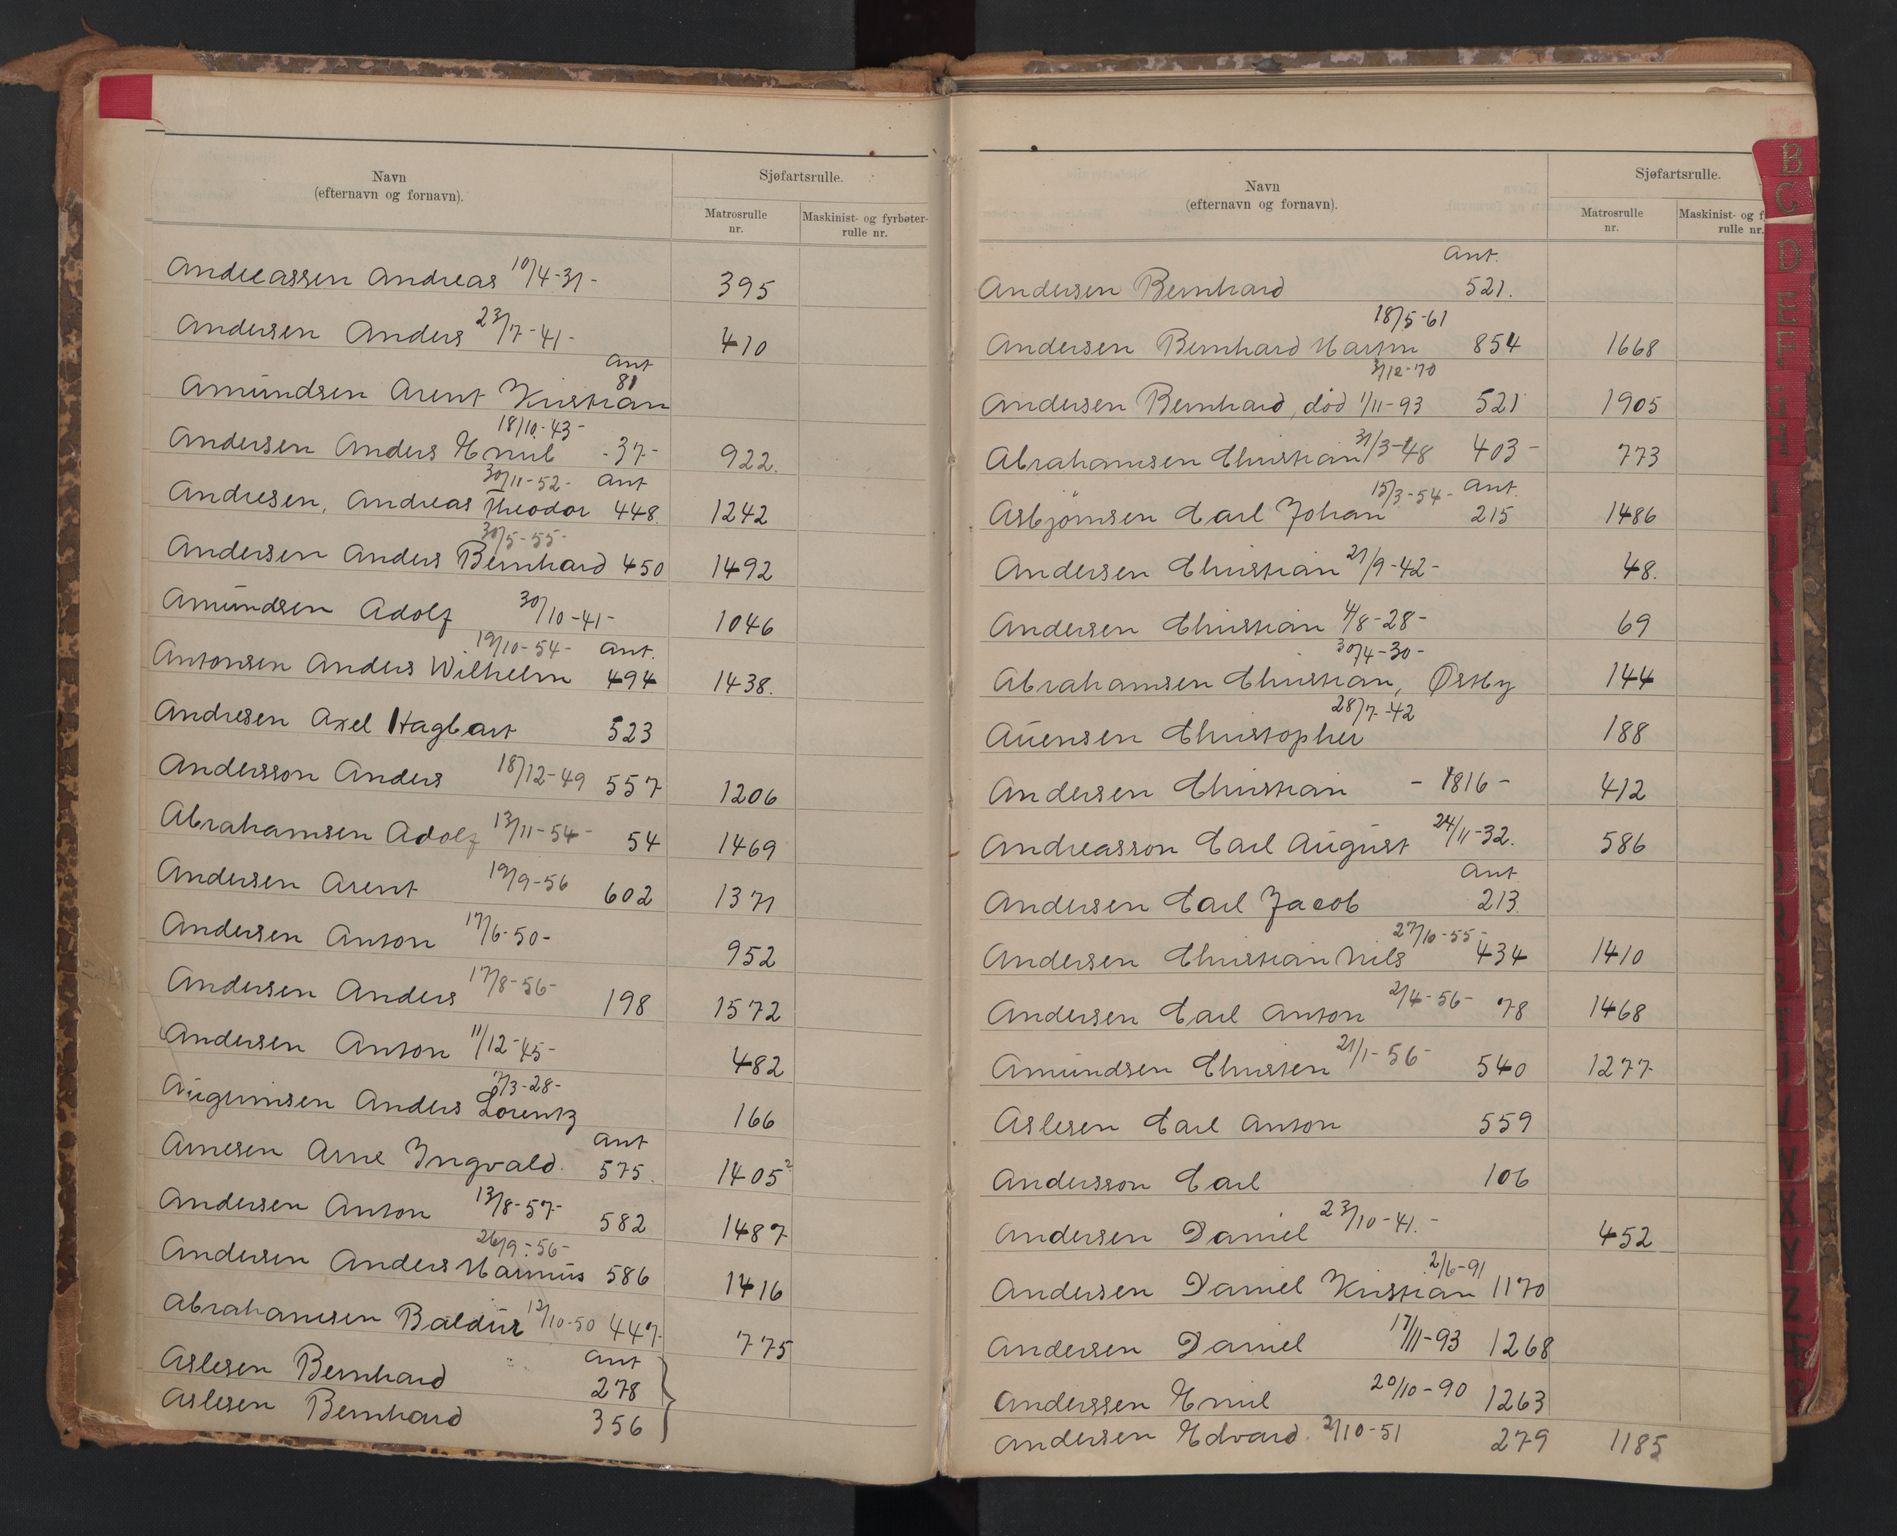 Navn
(efternavn og fornavn).
Sjøfartsrulle.
Matrosrulle
nr.
Maskinist- og fyrbøter-
rulle nr.
Andreassen Andreas 10/4-31- 395
Andersen Anders 23/7-41- 410
Ant
Amundsen Arent Kristian 81
18/10-43-
Andersen Anders Emil -37- 922.
30/11-52- Ant
Andresen, Andreas Theodor 448. 1242
30/5-55-
Andersen Anders Bernhard 450 1492
Amundsen Adolf 30/10-41- 1046
19/10-54- Ant.
Antonsen Anders Wilhelm 494 1438.
Andresen Axel Hagbart 523
Andersson Anders 18/12-49 557 1206
Abrahamsen Adolf 13/11-54- 54 1469
Andersen Arent 19/9-56 602 1371
Andersen Anton 17/6-50- 952
Andersen Anders 17/8-56- 198 1572
Andersen Anton 11/12-45- 482
7/3-28-
Augrimsen Anders Lorentz 166
Ant
Arnesen Arne Ingvald. 575. 1405²
Andersen Anton 13/8-57- 582 1487
26/9-56-
Andersen Anders Marinus 586 1416
Abrahamsen Baldur 12/10-50 447- 775
Ant
Aslesen Bernhard 278
Aslesen Bernhard 356
Navn
(efternavn og fornavn).
Sjøfartsrulle.
Matrosrulle
nr.
Maskinist- og f
rulle nr.
Ant.
Andersen Bernhard 521.
18/5-61
Andersen Bernhard Martin 854 1668
3/12-70
Andersen Bernhard, død 1/11-93 521 1905
Abrahamsen Christian 31/3-48 403- 773
15/3-54- Ant.
Asbjørnsen Carl Johan 215 1486
Andersen Christian 21/9-42- 48.
Andersen Christian 4/8-28- 69
30/4-30-
Abrahamsen Christian, Østby 144
28/7-42
Auensen Christopher 188
Andersen Christian -1816- 412
Andreasson Carl August 24/11-32. 586
Ant
Andersen Carl Jacob 213.
27/10-55-
Andersen Christian Nils 434 1410
Andersen Carl Anton 2/4-56- 78 1468
Amundsen Christen 21/1-56- 540 1277
Aslesen Carl Anton 559
Andersson Carl 106
Andersen Daniel 23/10-41.- 452
2/6-91
Andersen Daniel Kristian 1170
Andersen Daniel 17/11-93 1268
Anderssen Emil 20/10-90 1263
Andersen Edvard. 2/10-51 279 1185
B
C
D
E
F
G
H
I
V
X
Y
Z